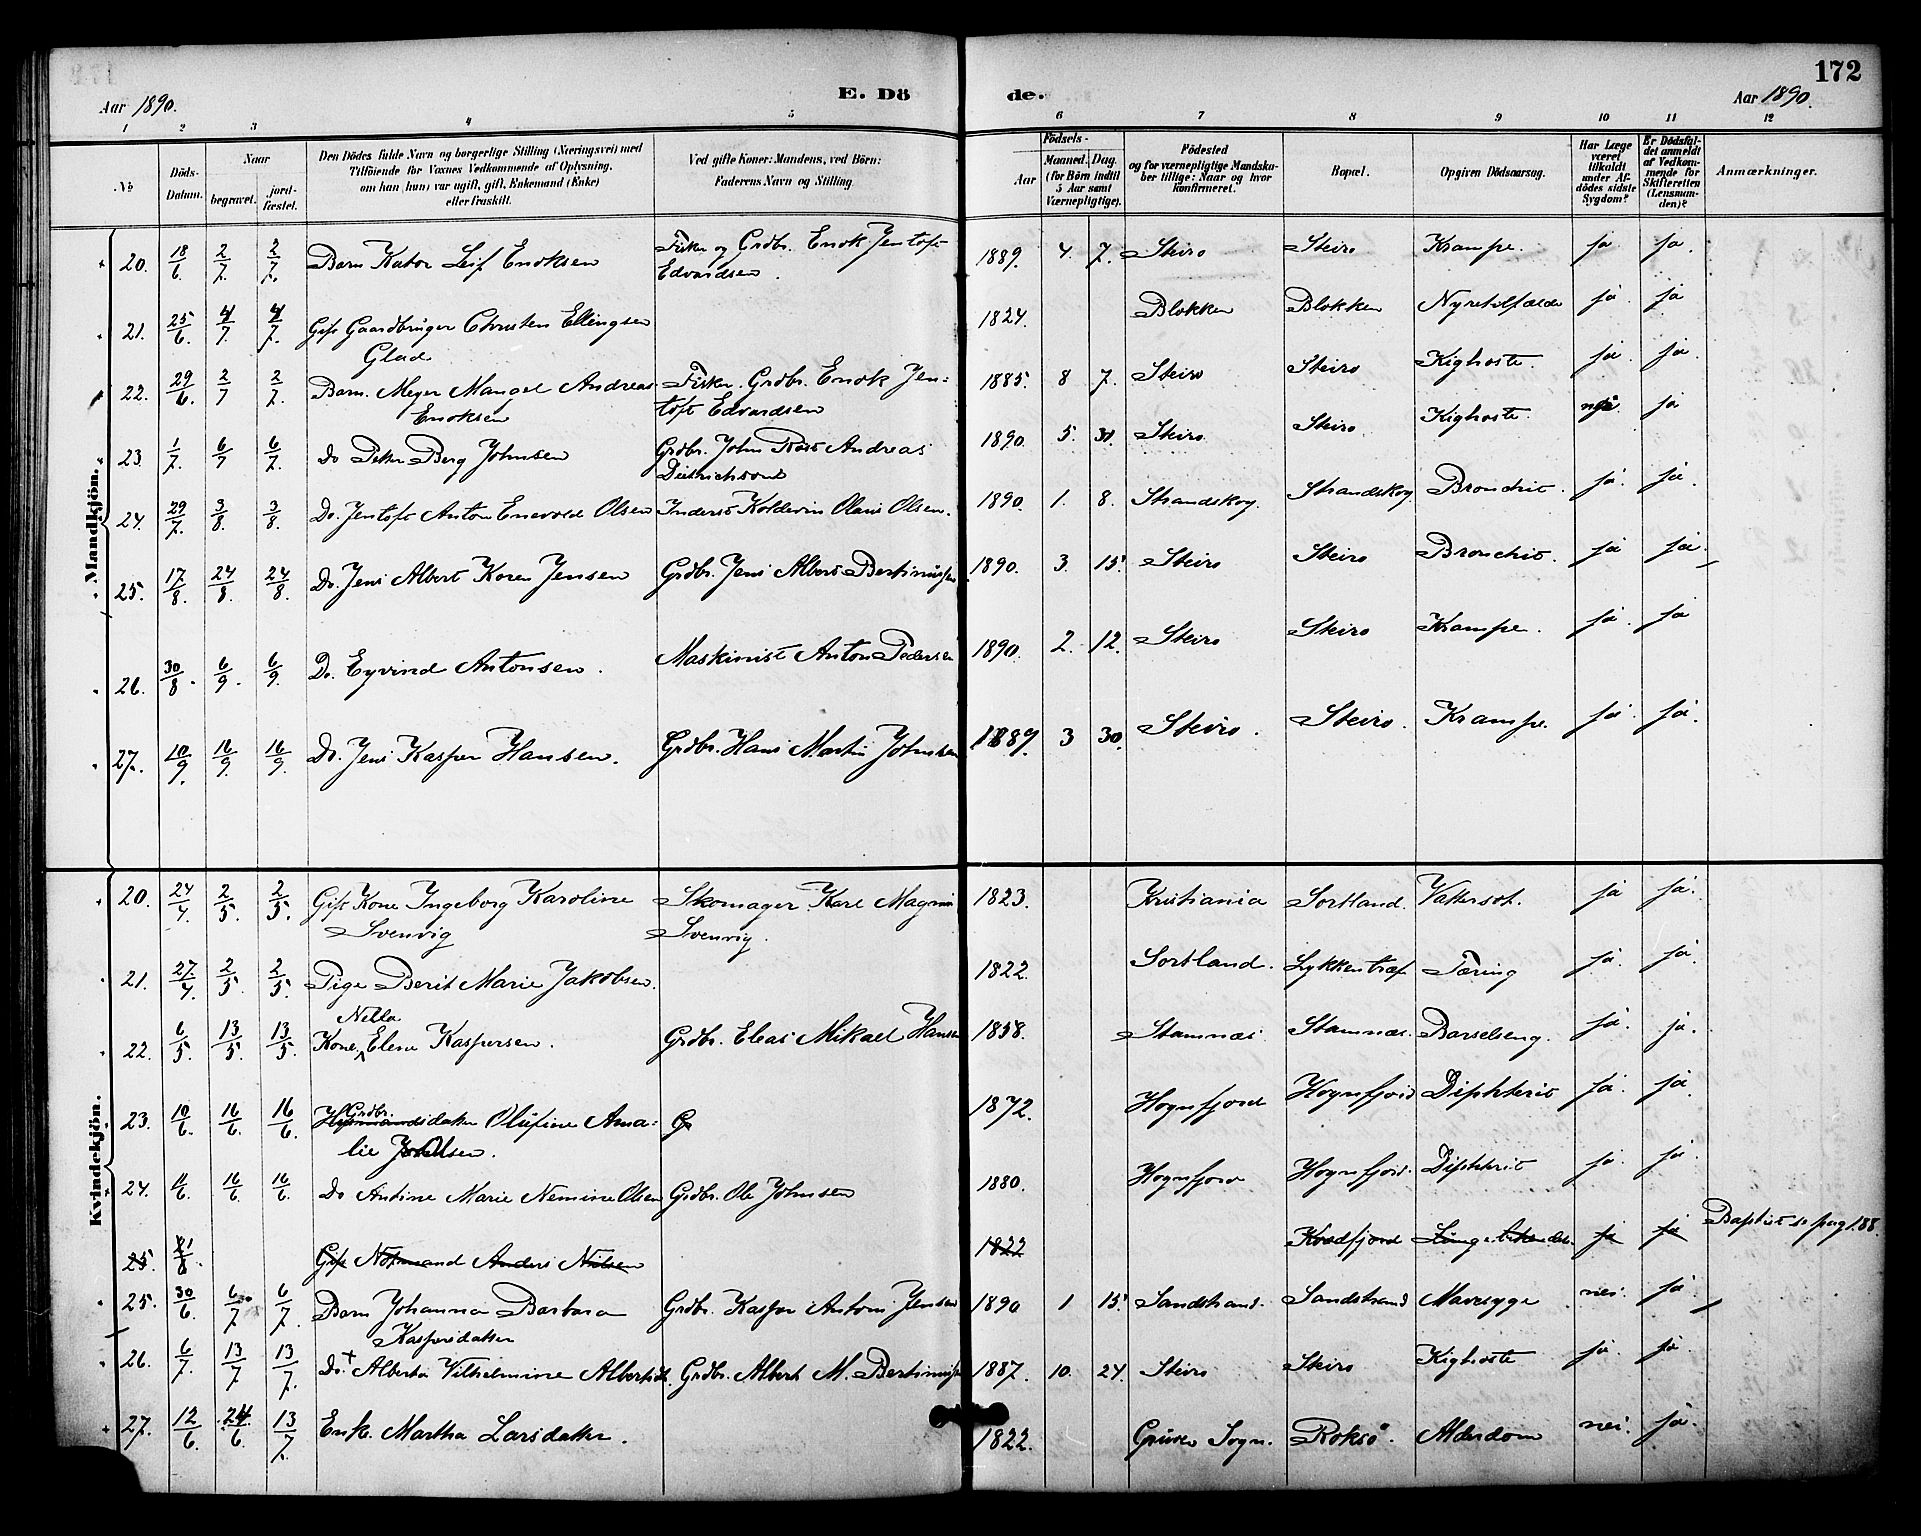 172
Aar 1890.
E. Dö
de.
Aar 1890.
1 2 3 4 5 6 7 8 9 10 11 12
No
Döds-Datum.
Naar
begravet.
jordfæstet.
Den Dödes fulde Navn og borgerlige Stilling (Næringsvei) med
Tilföiende for Voxnes Vedkommende af Oplysning,
om han (hun) var ugift, gift, Enkemand (Enke)
eller fraskilt.
Ved gifte Koner: Mandens, ved Börn:
Faderens Navn og Stilling.
Födsels-
Aar
Maaned. Dag.
(for Börn indtil
5 Aar samt
Værnepligtige).
Födested
og for værnepligtige Mandskaber
tillige: Naar og hvor
konfirmeret.
Bopæl.
Opgiven Dödsaarsag.
Har Læge
været
tilkaldt
under Afdödes
sidste
Sygdom?
Er Dödsfaldet
anmeldt
af Vedkommende
for
Skifteretten
(Lensmanden)?
Anmærkninger.
Mandkjön.
20. 18/6 2/7. 2/7. Barn Kator Leif Enoksen Fisker og Grdbr. Enok Jentoft 1889. 4. 7. Steiro Steiro Krampe. ja ja.
Edvardsen.
21. 25/6. 4/7. 4/7. Gift Gaardbruger Christen Ellingsen 1824. Blokken Blokken ja. ja
Glad
22. 29/6. 2/7 2/7. Barn. Meyer Mangel Andreas Fisker. Grdbr. Enok Jen= 1885. 8 7. Steiro Steiro Kighoste. ja. ja.
Enoksen toft Edvardsen
23. 1/7. 6/7 6/7. Do Peter Berg Johnsen Grdbr. John Andreas 1890. 5. Steiro. Steiro. Kighoste. ja
24. 29/7. 3/8. 3/8. Do. Jentoft Anton Enevold Olsen Inderst Koldevin Olaus Olsen. 1890. 1. 8. Strandskog. Strandskog Bronchit. ja. ja.
25. 17/8. 24/8. 24/8. Do. Jens Albert Koren Jensen Grdbr. Jens Albert Bertinussen 1890. 3. 15. Steiro Steiro Bronchit. ja ja.
26. 30/8. 6/9. 6/9. Do. Eyvind Antonsen. Maskinist Anton Pedersen 1890. 2. 12. Steiro Steiro Krampe. ja. ja
27. 10/9. 16/9. 16/9. Do. Jens Kasper Hansen. Grdbr. Hans Martin Johnsen 1889. 3 30. Steiro. Steiro. Krampe. ja. ja.
Kvindekjön.
20. 24/4. 2/5. 2/5. Gift Kone Ingeborg Karoline Skomager Karl Magnus 1823. Kristiania Sortland. Vattersot. ja ja.
Svenvig Svenvig.
21. 27/4. 2/5. 2/5. Pige Berit Marie Jakobsen. 1822. Sortland. Tæring ja. ja.
Nella
22. 6/5. 13/5. 13/5. Kone Elene Kaspersen. Grdbr. Eleas Mikael Hansen 1858. Stamnæs Stamnæs. Barselseng. ja. ja.
Grdbr.
23. 10/6. 16/6. 16/6. Husmandsdatter Olufine Ama= 1872. Hognfjord Hognfjord Diphterit ja. ja.
lie
24. 11/6. 16/6. 16/6. Do Andine Marie Nemine Olsen Grdbr. Ole Johnsen 1880. Hognfjord Hognfjord. Diphterit ja. ja.
25. Gift Anders Nielsen 1822 Kvedfjord ja ja Baptist se pag 188.
25. 30/6 6/7. 6/7. Barn Johanna Barbara Grdbr. Kasper Antom Jensen 1890 1 15. Sandstrand. Sandstrand Mavesyge. nei. ja.
Kaspersdatter
26. 6/7. 13/7. 13/7. Do. Alberta Vilhelmine Grdbr. Albert M. 1887. 10. 24. Steiro Steiro Kighoste ja. ja.
27. 12/6. 24/6. 13/7. Enk. Martha Larsdatter. 1822. Sogn. Roksö. Alderdom nei. ja.